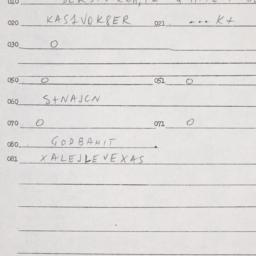 020 KAS1VOKBER 021 ... K+
030 O
050 O 051 O
060 S+NAJCN
070 O 071 O
080 GODBAHIT
081 XALEJLEVEXAS